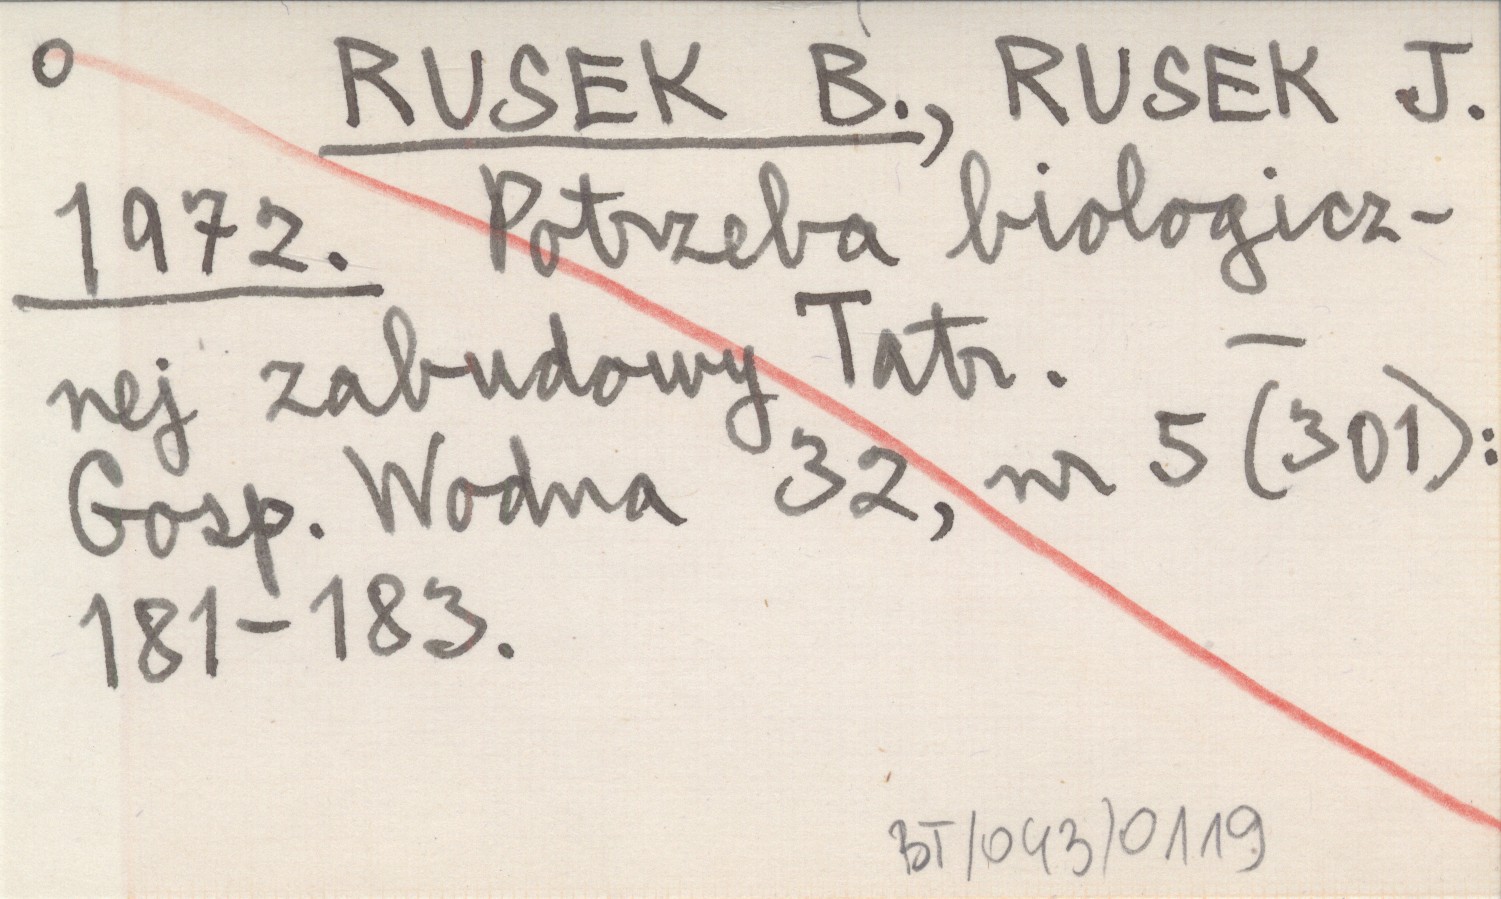 o RUSEK B., RUSEK J.
1972. Potrzeba biologicz-
nej zabudowy Tatr. —
Gosp. Wodna 32, nr 5 (301):
181-183.
BT/043/0119